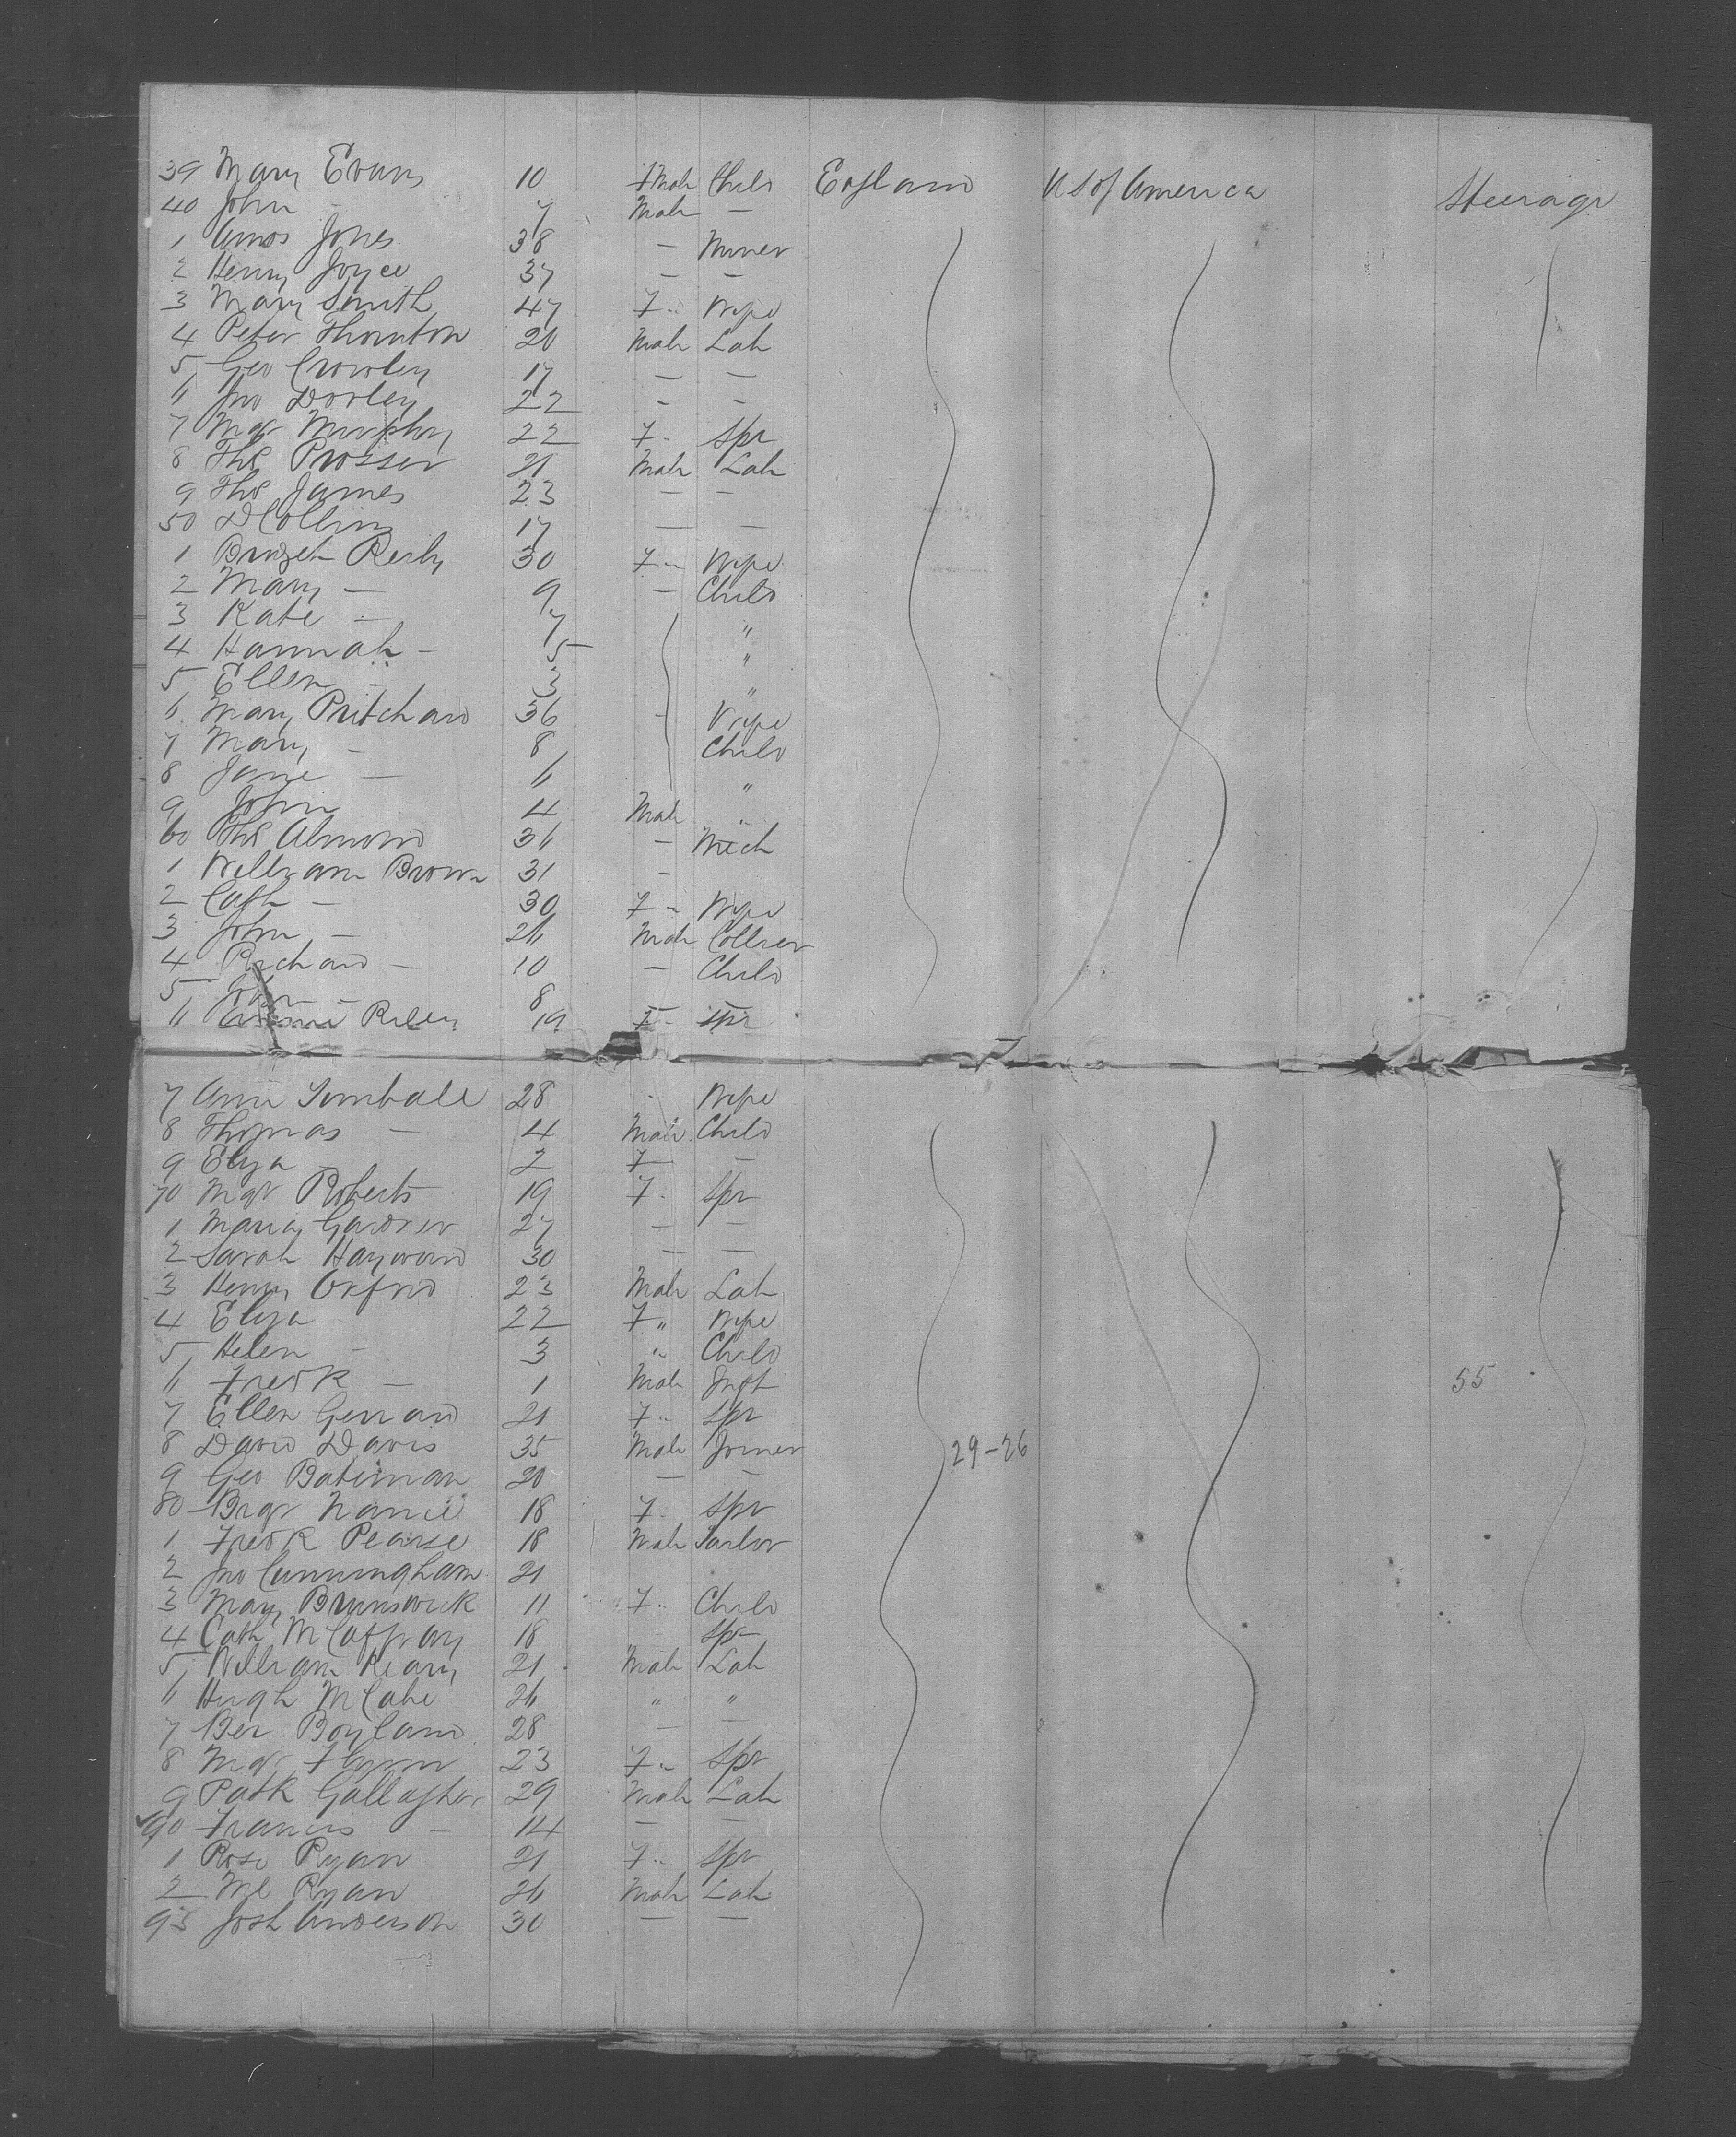 39 Mary Evans 10 Fmale Child England U S of America Steerage
40 John - 7 Male -
1 Amos Jones 38 - Miner
2 Henry Joyce 37 - -
3 Mary Smith 47 F " Wife
4 Peter Thornton 20 Male Lab
5 Geo Crowley 17 - -
6 Jno Dooley 22 - -
7 Mgt Murphy 22 F " Spr
8 Ths Prosser 21 Male Lab
9 Ths James 23 - -
50 D Collins 17 - -
1 Bridget Reily 30 F " Wife
2 Mary - 9 - Child
3 Kate - 7 "
4 Hannah - 5 "
5 Ellen - 3 "
6 Mary Pritchard 36 - Wife
7 Mary - 8 Child
8 Jane - 6 "
9 John 4 Male "
60 Ths Almond 36 - Mech
1 William Brown 31 -
2 Cath - 30 F " Wife
3 John - 26 Male Collier
4 Richard - 10 - Child
5 John - 8 - -
6 Annie Riley 19 F " Spr
7 Ann Turnbull 28 - Wife
8 Thomas - 4 Male Child
9 Eliza 2 F -
70 Mgt Roberts 19 F " Spr
1 Maria Gardner 27 - -
2 Sarah Hayward 30 - -
3 Henry Oxford 23 Male Lab
4 Eliza 22 F " Wife
5 Helen - 3 " Child
6 Fredk - 1 Male Inft 55
7 Ellen Gerrard 21 F " Spr
8 David Davis 35 Male Joiner 29-26
9 Geo Bateman 20 - -
80 Brgt Nance 18 F " Spr
1 Fredk Pearse 18 Male Sailor
2 Jno Cunningham 21
3 Mary Brunswick 11 F " Child
4 Cath McCaffray 18 Spr
5 William Keary 21 Male Lab
6 Hugh McCabe 26 " "
7 Ber Boyland 28 - -
8 Mgt Flynn 23 F " Spr
9 Patk Gallagher 29 Male Lab
90 Francis - 14 - -
1 Rose Ryan 21 F " Spr
2 Ml Ryan 26 Male Lab
93 Josh Anderson 30 - -